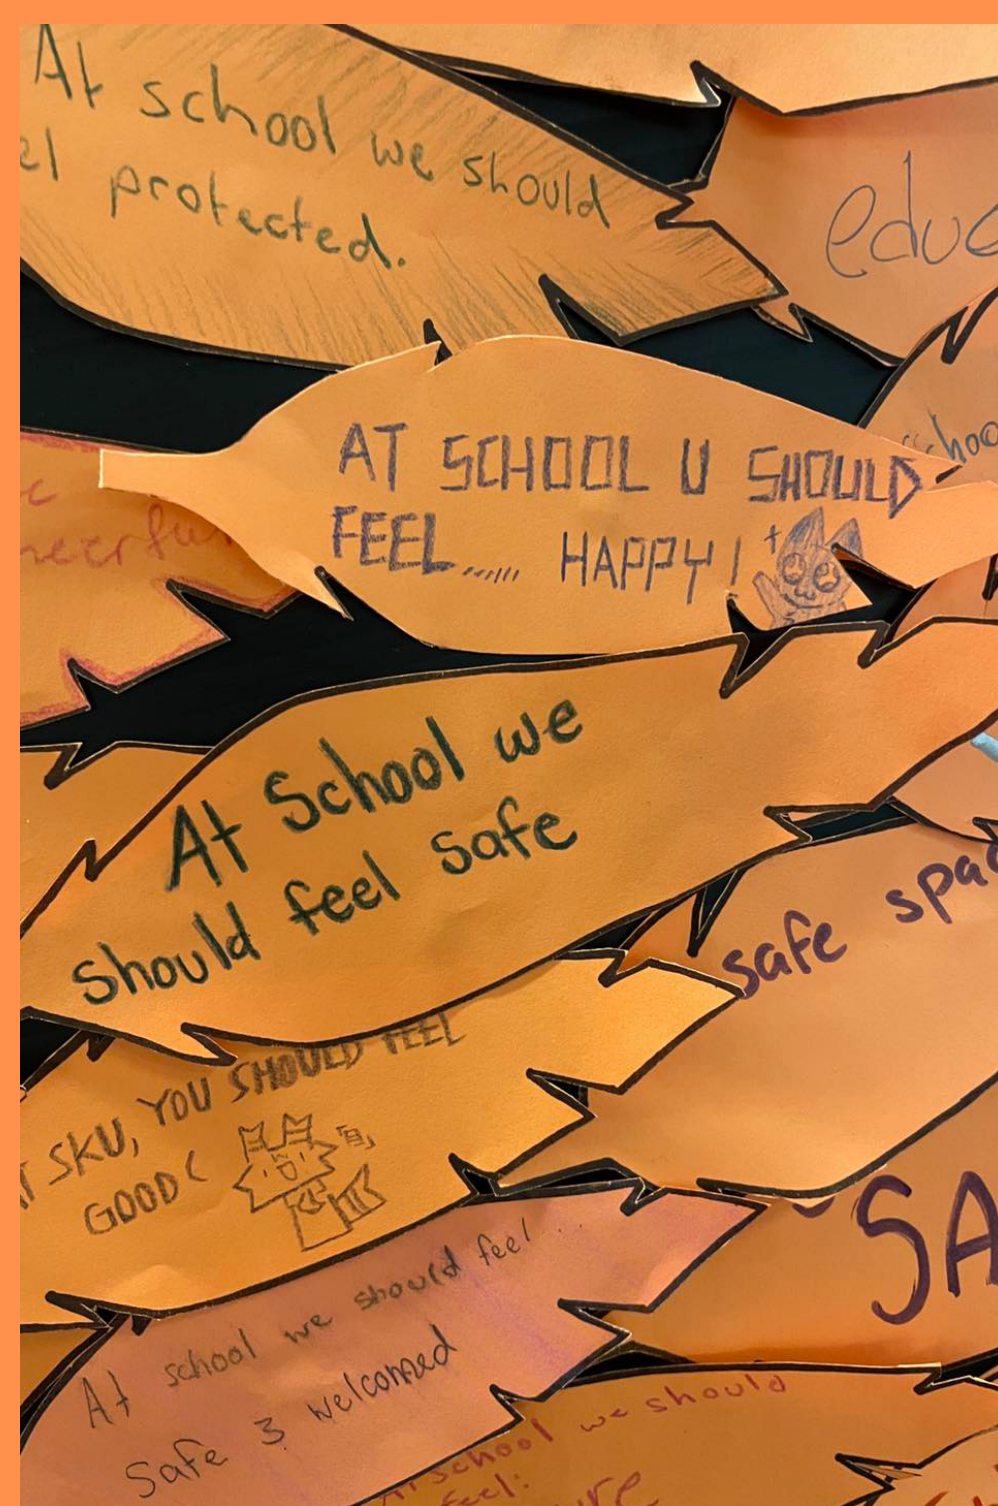 At school we should
el protected.
educ
schoo
AT SCHOOL U SHOULD
FEEL..... HAPPY!
c
heerful
At School we
should feel safe
safe spac
AT SKU, YOU SHOULD FEEL
GOOD
SA
At school we should feel...
Safe & welcomed
At school we should
feel:
ure